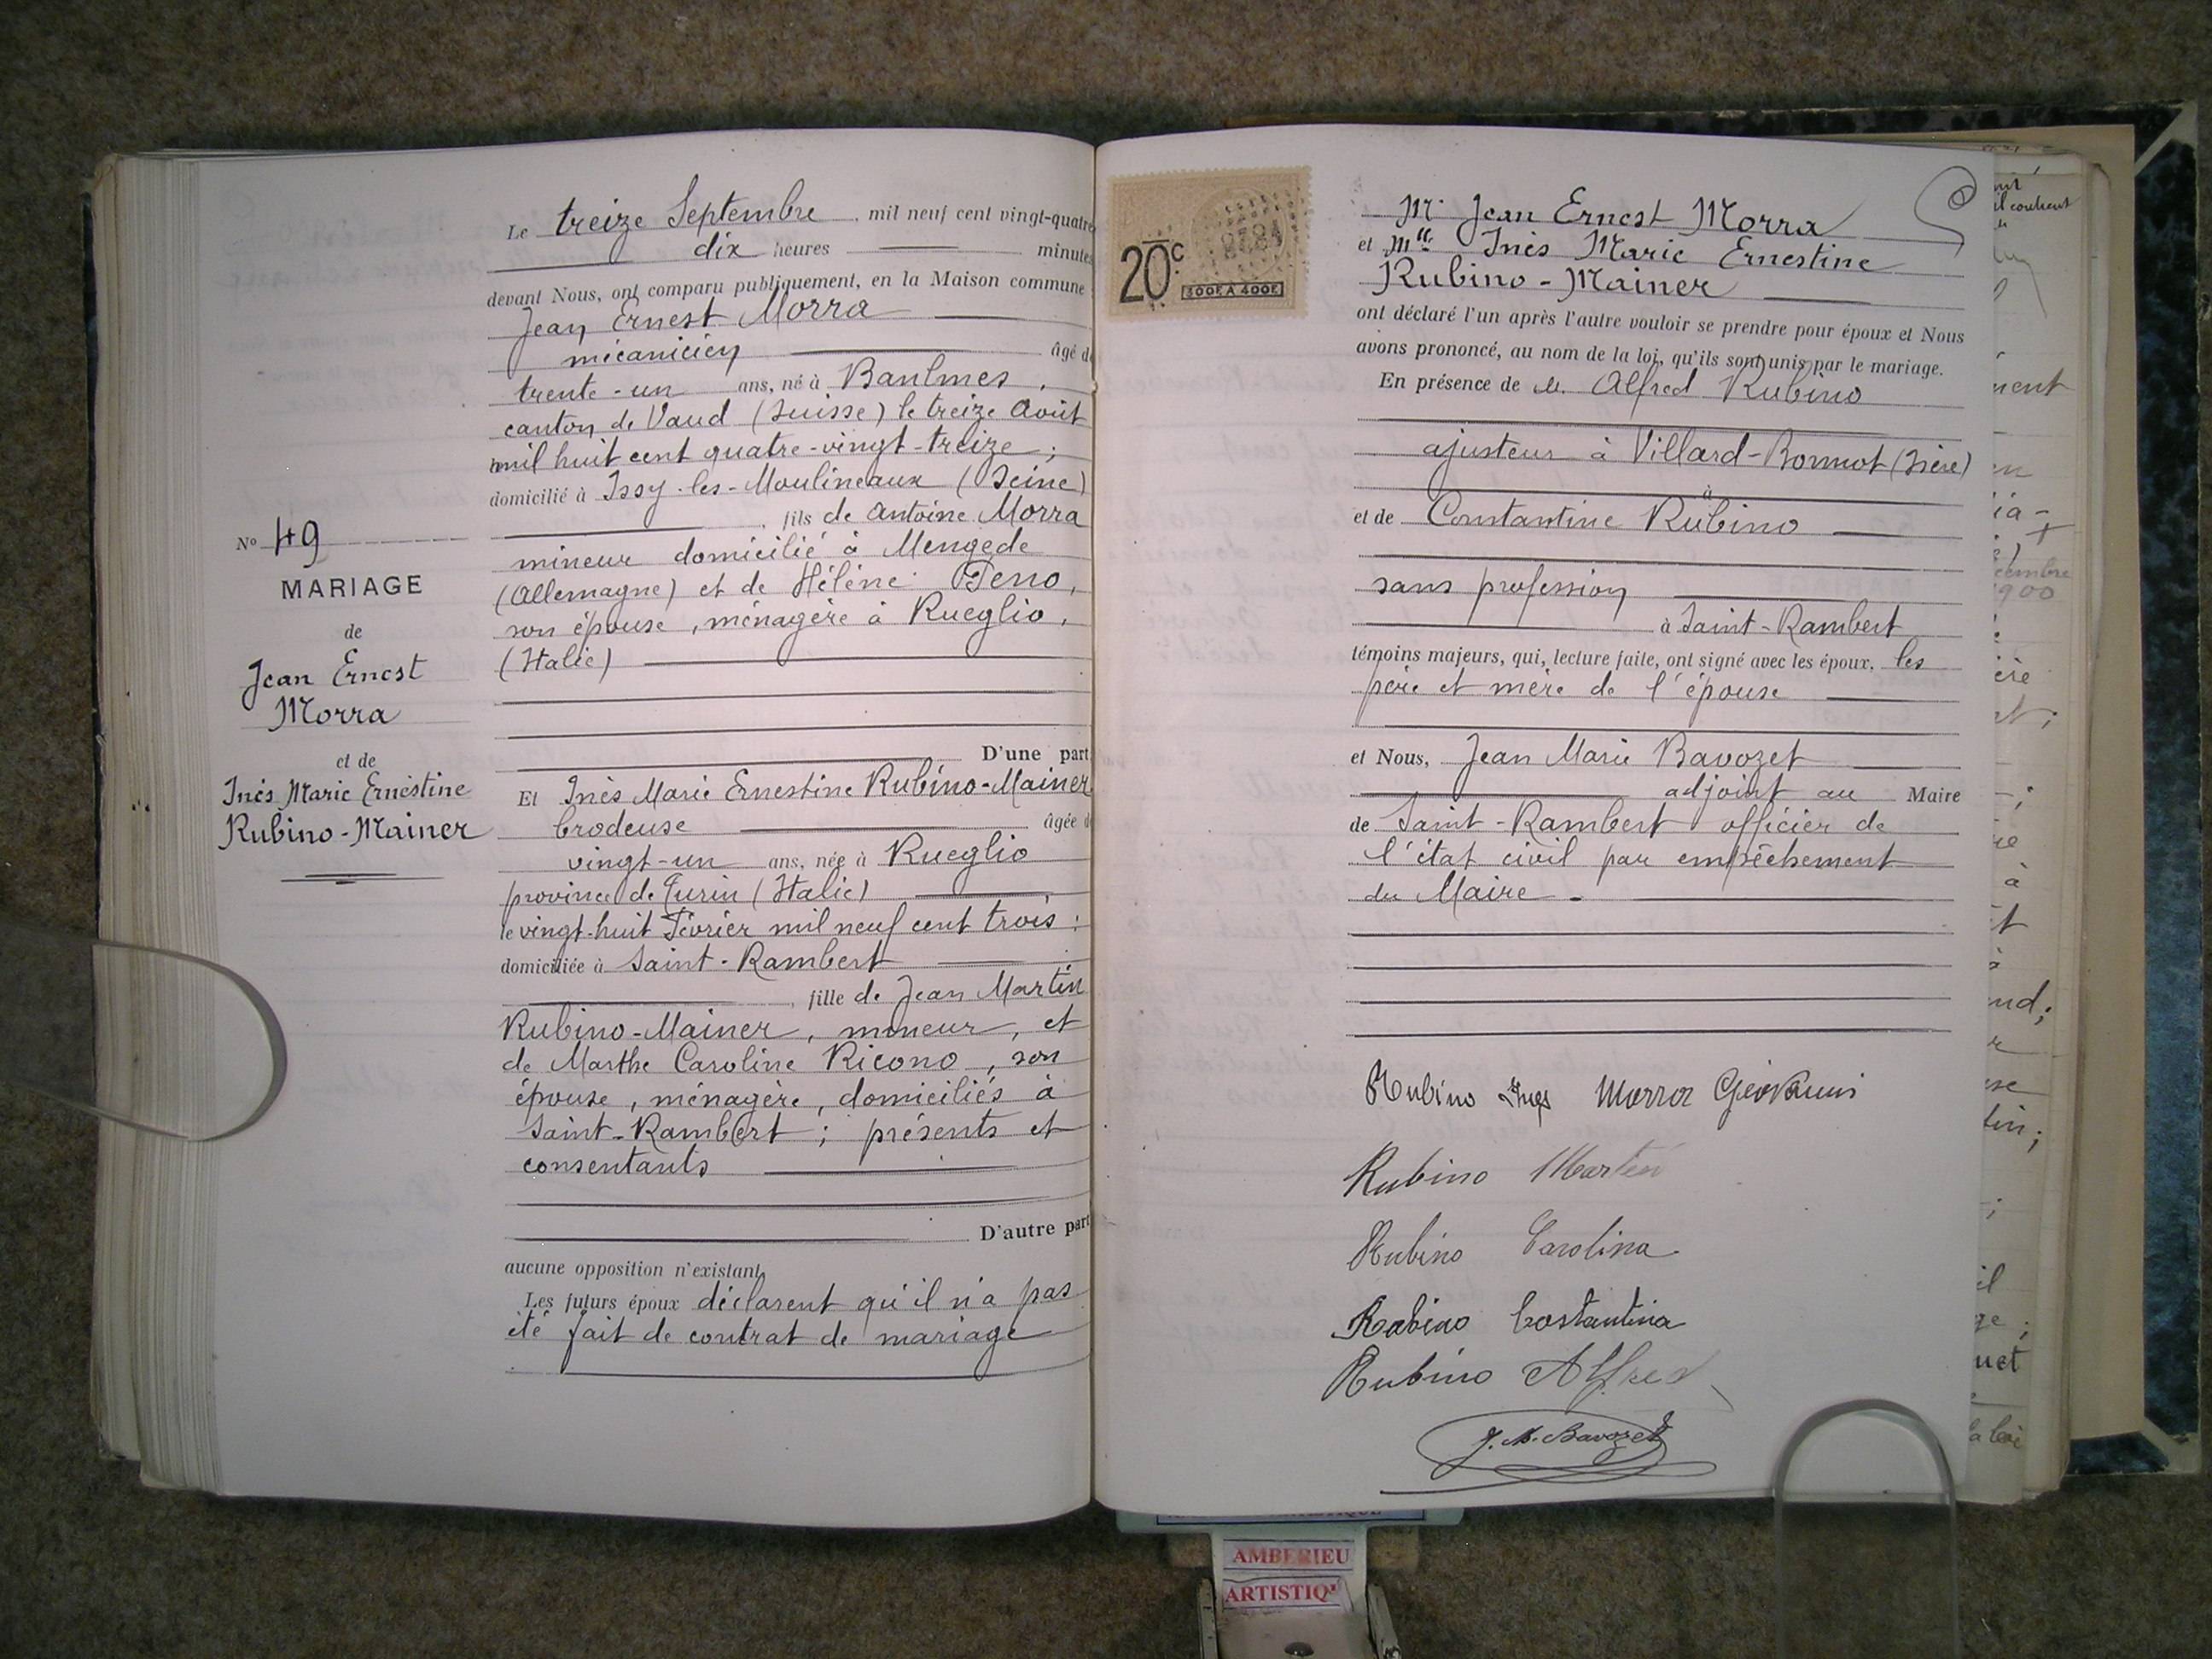 Le treize Septembre, mil neuf cent vingt-quatre
dix heures minutes
devant Nous, ont comparu publiquement, en la Maison commune
Jean Ernest Morra
mécanicien âgé de
trente-un ans, né à Baulmes,
canton de Vaud (Suisse) le treize Août
mil huit cent quatre-vingt-treize;
domicilié à Issy-les-Moulineaux (Seine)
, fils de Antoine Morra
mineur domicilié à Mengede
(Allemagne) et de Hélène Peno,
son épouse, ménagère à Rueglio,
(Italie)
D'une part
No 49
MARIAGE
de
Jean Ernest
Morra
et de
Inès Marie Ernestine
Rubino-Mainer
Et Inès Marie Ernestine Rubino-Mainer
brodeuse âgée de
vingt-un ans, née à Rueglio
province de Turin (Italie)
le vingt-huit Février mil neuf cent trois:
domiciliée à Saint-Rambert
, fille de Jean Martin
Rubino-Mainer, mineur, et
de Marthe Caroline Ricono, son
épouse, ménagère, domiciliés à
Saint-Rambert; présents et
consentants
D'autre part
aucune opposition n'existant
Les futurs époux déclarent qu'il n'a pas
été fait de contrat de mariage
20c
300F A 400F
Mr Jean Ernest Morra
et Mlle Inès Marie Ernestine
Rubino-Mainer
ont déclaré l'un après l'autre vouloir se prendre pour époux et Nous
avons prononcé, au nom de la loi, qu'ils sont unis par le mariage.
En présence de M. Alfred Rubino
ajusteur à Villard-Bonnot (Isère)
à
et de Constantine Rubino
sans profession
à Saint-Rambert
témoins majeurs, qui, lecture faite, ont signé avec les époux, les
père et mère de l'épouse
et Nous, Jean Marie Bavozet
adjoint au Maire
de Saint-Rambert officier de
l'état civil par empêchement
du Maire.
Rubino Ines Morra Giovanni
Rubino Martin
Rubino Carolina
Rubino Costantina
Rubino Alfred
J. M. Bavozet
AMBERIEU
ARTISTIQ